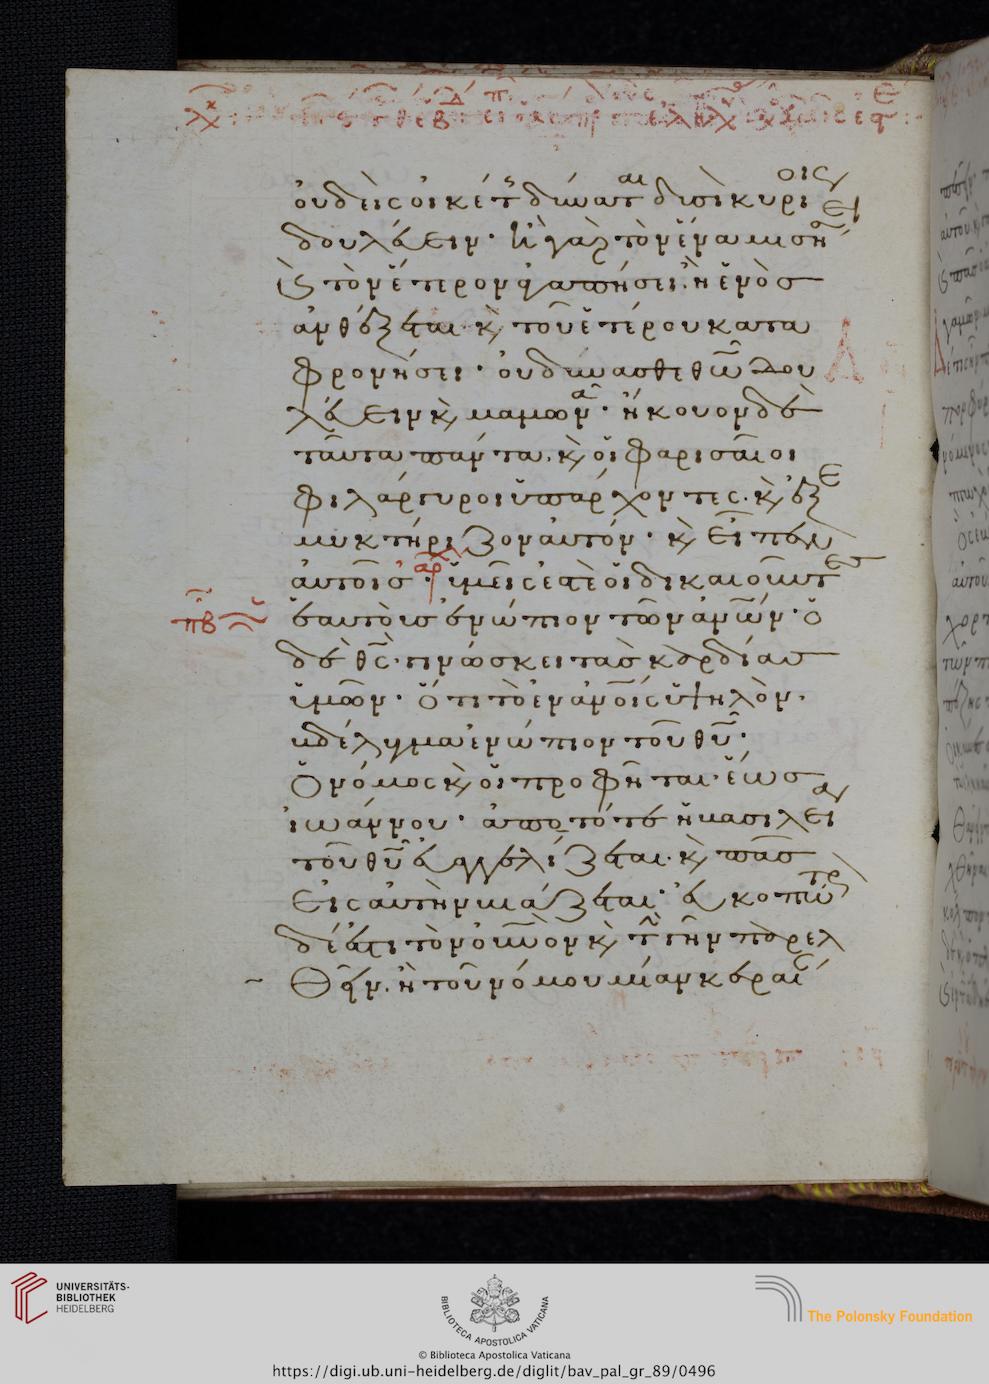 οὐδεὶς οἰκέτης δύναται δυσὶ κυρίοις
δουλεύειν· ἢ γὰρ τὸν ἕνα μισήσει
κ τὸν ἕτερον ἀγαπήσει. ἢ ἑνὸς
ἀνθέξεται κ τοῦ ἑτέρου κατα
φρονήσει· οὐ δύνασθε θῶ δου
λεύειν κ μαμωνᾶ· ἤκουον δὲ
ταῦτα πάντα. κ οἱ φαρισαῖοι
φιλάργυροι ὑπάρχοντες. κ ἐξε
μυκτήριζον αὐτόν· κ εἶπεν
αὐτοῖς· ὑμεῖς ἐστὲ οἱ δικαιοῦντες
πβ ἑαυτοὺς ἐνώπιον τῶν ἀνῶν· ὁ
δὲ θς γινώσκει τὰς καρδίας
ὑμῶν· ὅτι τὸ ἐν ἀνοις ὑψηλὸν.
βδέλυγμα ἐνώπιον τοῦ θυ·
Ὁ νόμος κ οἱ προφῆται· ἕως
ἰωάννου· ἀπὸ τότε ἡ βασιλεία
τοῦ θυ εὐαγγελίζεται. κ πᾶς
εἰς αὐτὴν βιάζεται· εὐκοπώτερον
δέ ἐστι τὸν οὐνον κ τὴν γῆν παρελ
θεῖν. ἢ τοῦ νόμου μίαν κεραίαν
UNIVERSITÄTS-
BIBLIOTHEK
HEIDELBERG
BIBLIOTECA APOSTOLICA VATICANA
© Biblioteca Apostolica Vaticana
The Polonsky Foundation
https://digi.ub.uni-heidelberg.de/diglit/bav_pal_gr_89/0496